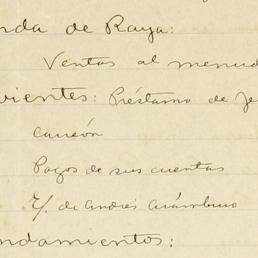 nda de Raya:
Ventas al menud
vientes: Préstamo de Je
Canción
Pagos de sus cuentas
de Andrés Arámburo
ndamientos: